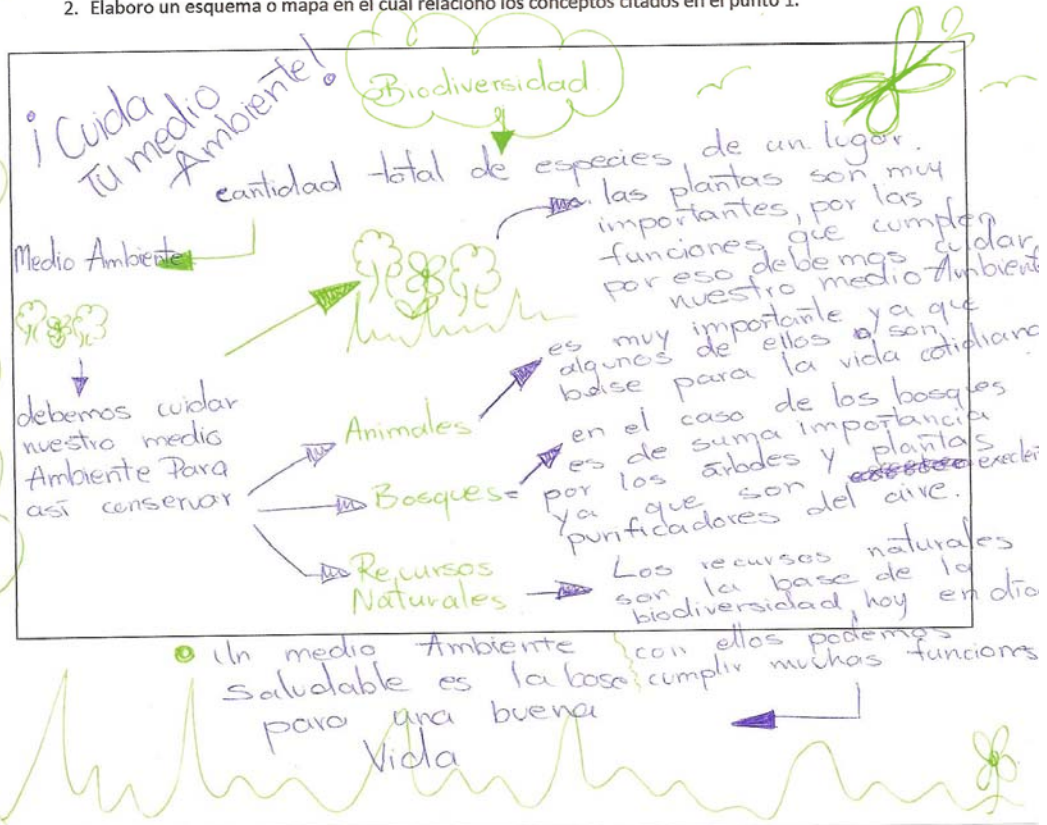 2. Elaboro un esquema o mapa en el cual relaciono los conceptos citados en el punto 1.
¡Cuida
Tu medio
Ambiente!
Biodiversidad
cantidad total de especies de un lugar.
Medio Ambiente
debemos cuidar
nuestro medio
Ambiente Para
así conservar
las plantas son muy
importantes, por las
funciones que cumplen
por eso debemos cuidar
nuestro medio Ambiente
Animales
es muy importante ya que
algunos de ellos son
base para la vida cotidiana
Bosques=
en el caso de los bosques
es de suma importancia
por los árboles y plantas
ya que son
purificadores del aire.
Recursos
Naturales
Los recursos naturales
son la base de la
biodiversidad, hoy en día
con ellos podemos
cumplir muchas funciones
Un medio Ambiente
Saludable es la base
para una buena
Vida